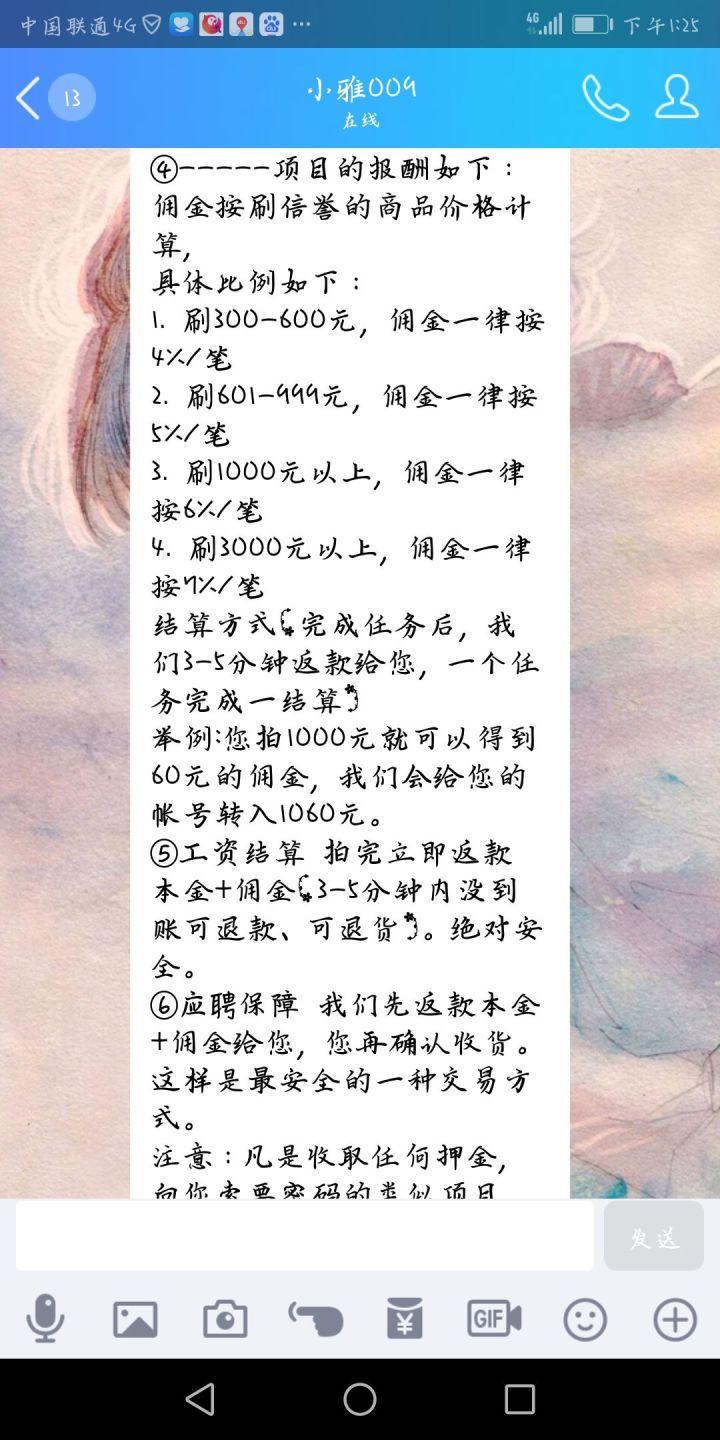 中国联通4G
4G
下午1:25
13
小雅009
在线
④-----项目的报酬如下：
佣金按刷信誉的商品价格计
算,
具体比例如下：
1. 刷300-600元，佣金一律按
4%/笔
2. 刷601-999元，佣金一律按
5%/笔
3. 刷1000元以上，佣金一律
按6%/笔
4. 刷3000元以上，佣金一律
按7%/笔
结算方式(完成任务后，我
们3-5分钟返款给您，一个任
务完成一结算)
举例:您拍1000元就可以得到
60元的佣金，我们会给您的
帐号转入1060元。
⑤工资结算 拍完立即返款
本金+佣金(3-5分钟内没到
账可退款、可退货)。绝对安
全。
⑥应聘保障 我们先返款本金
+佣金给您，您再确认收货。
这样是最安全的一种交易方
式。
注意：凡是收取任何押金，
向你索要密码的类似项目
发送
GIF